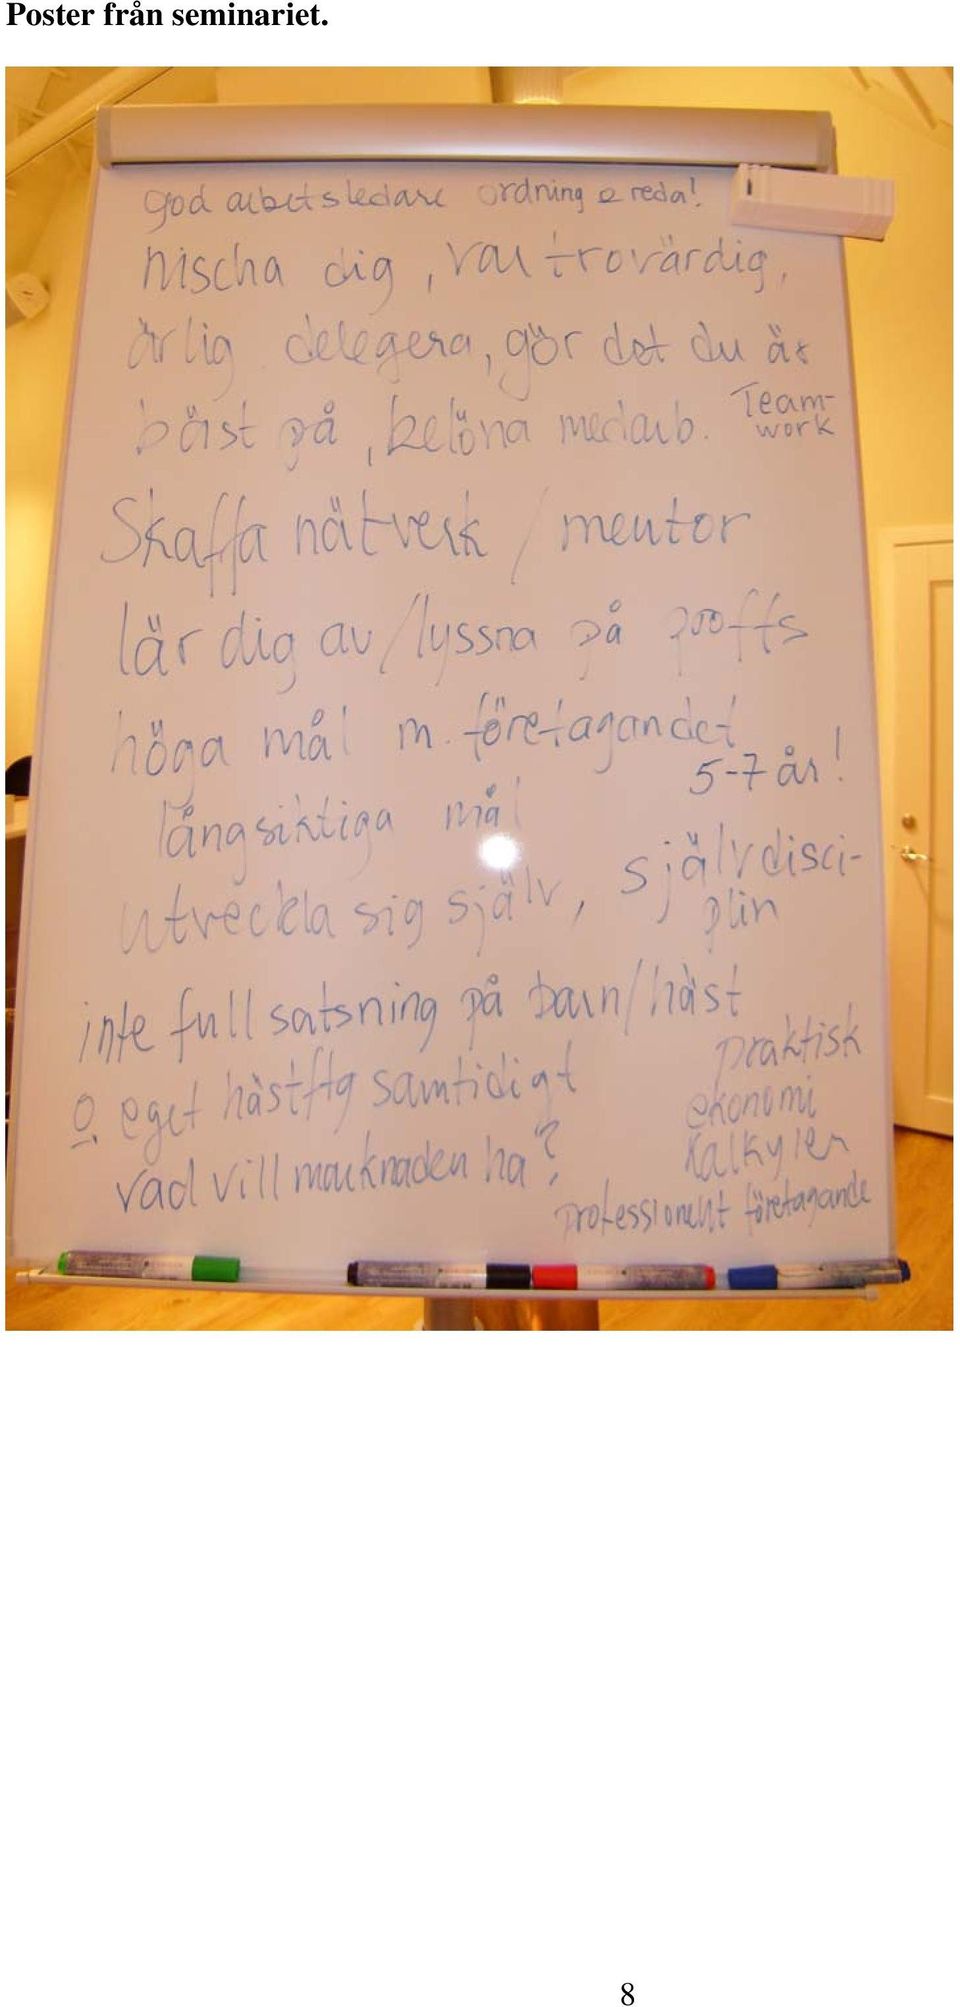 Poster från seminariet.
god arbetsledare ordning o reda!
nischa dig, var trovärdig,
ärlig. delegera, gör det du är
bäst på, belöna medarb. Team-
work
Skaffa nätverk / mentor
lär dig av / lyssna på proffs
höga mål m. företagandet
5-7 år!
långsiktiga mål
utveckla sig själv, självdisci-
plin
inte full satsning på barn/häst
o. eget hästftg samtidigt
praktisk
ekonomi
vad vill marknaden ha?
kalkyler
professionellt företagande
8